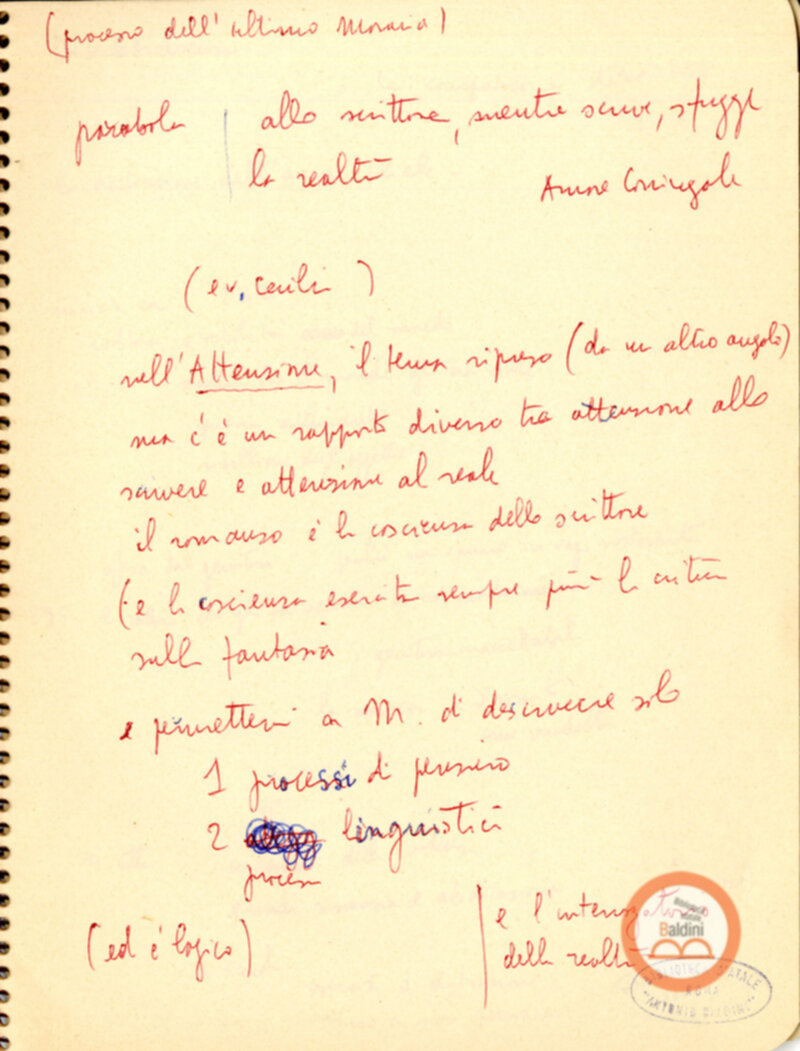 (processo dell'ultimo Moravia)
parabola | allo scrittore, mentre scrive, sfugge
la realtà
Amore Coniugale
(ev. Cecilia)
nell'Attenzione, il tema ripreso (da un altro angolo)
ma c'è un rapporto diverso tra attenzione allo
scrivere e attenzione al reale
il romanzo è la coscienza dello scrittore
(e la coscienza esercita sempre più la critica
sulla fantasia
e permettersi a M. di descrivere solo
1 processi di pensiero
2 linguistici
processi
(ed è logico)
e l'interrogatorio
della realtà
Biblioteca
Statale
Baldini
BIBLIOTECA STATALE
ROMA
"ANTONIO BALDINI"